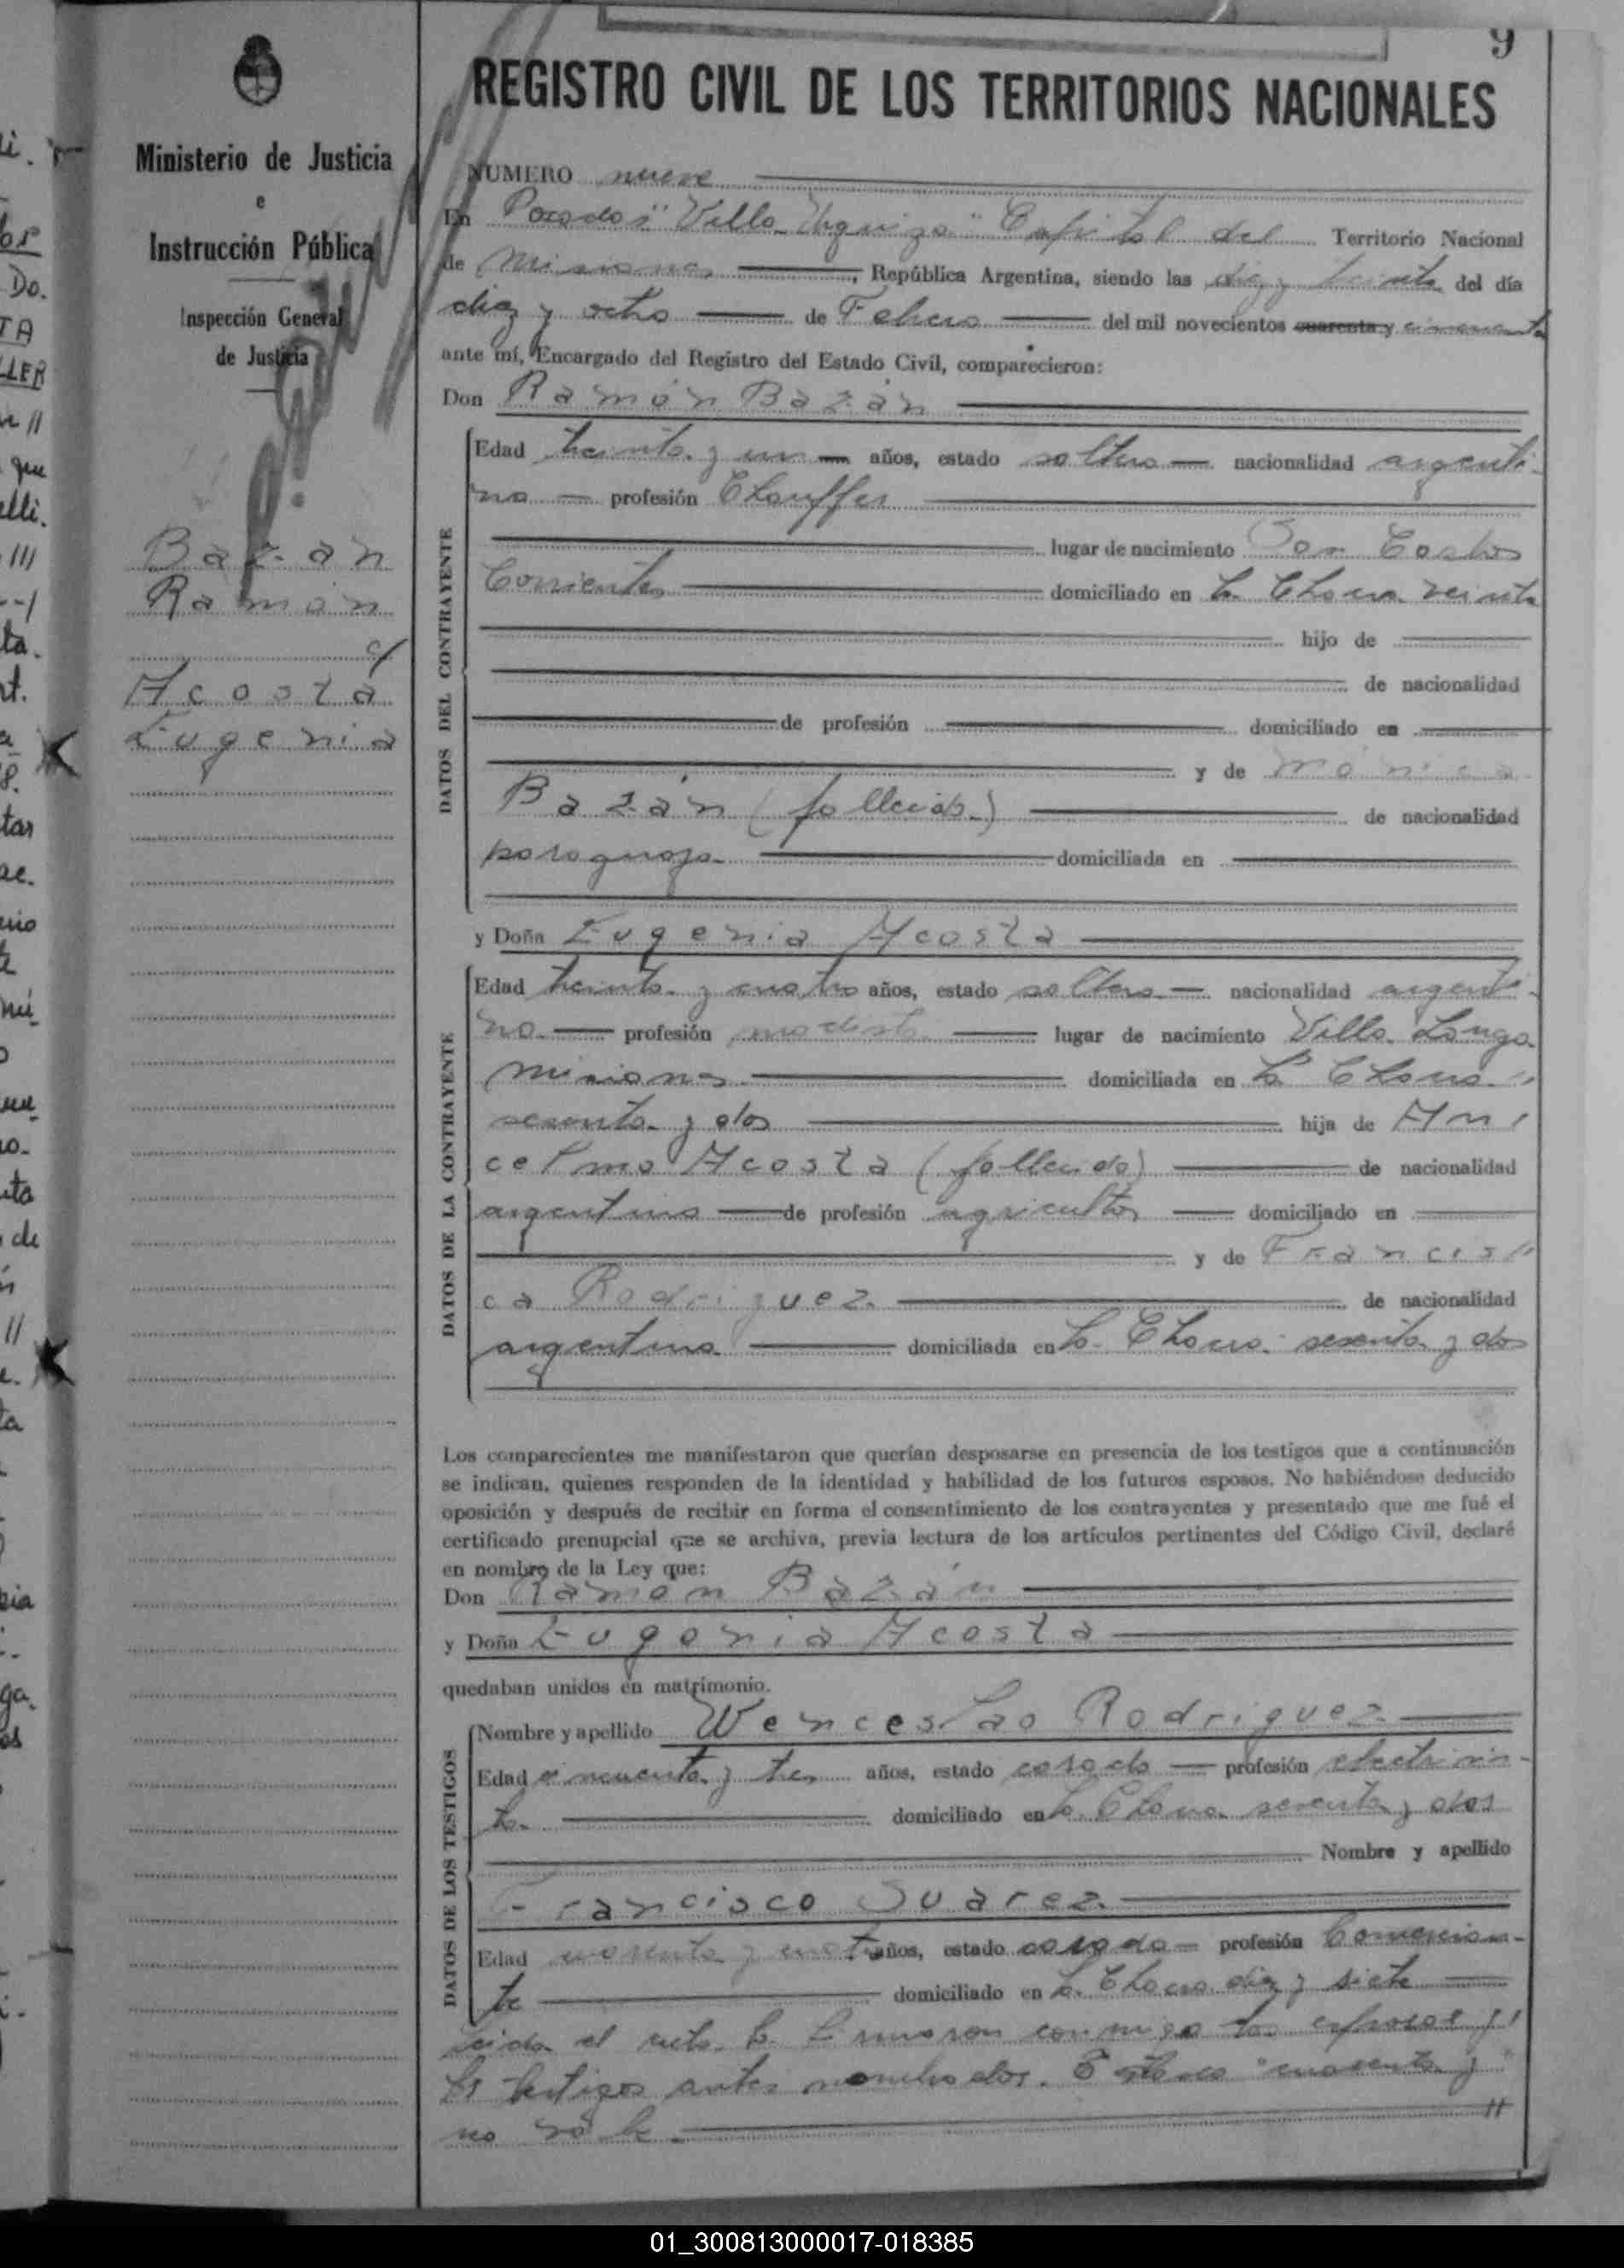 9
REGISTRO CIVIL DE LOS TERRITORIOS NACIONALES
Ministerio de Justicia
e
Instrucción Pública
Inspección General
de Justicia
Bazán
Ramón
c/
Acosta
Eugenia
NUMERO nueve
En Posadas "Villa Urquiza" Capital del Territorio Nacional
de Misiones, República Argentina, siendo las diez y treinta del día
diez y ocho de Febrero del mil novecientos cuarenta y cincuenta
ante mí, Encargado del Registro del Estado Civil, comparecieron:
Don Ramón Bazán
DATOS DEL CONTRAYENTE
Edad treinta y un años, estado soltero nacionalidad argenti-
no profesión Chouffer
lugar de nacimiento San Carlos
Corrientes domiciliado en la Chacra veinte
hijo de
de nacionalidad
de profesión domiciliado en
y de Mónica
Bazán (fallecida) de nacionalidad
paraguaya domiciliada en
y Doña Eugenia Acosta
DATOS DE LA CONTRAYENTE
Edad treinta y cuatro años, estado soltera nacionalidad argenti-
na profesión modista lugar de nacimiento Villa Lanza
Misiones domiciliada en la Chacra
sesenta y dos hija de An
celmo Acosta (fallecido) de nacionalidad
argentino de profesión agricultor domiciliado en
y de Francis
ca Rodriguez de nacionalidad
argentina domiciliada en la Chacra sesenta y dos
Los comparecientes me manifestaron que querían desposarse en presencia de los testigos que a continuación
se indican, quienes responden de la identidad y habilidad de los futuros esposos. No habiéndose deducido
oposición y después de recibir en forma el consentimiento de los contrayentes y presentado que me fué el
certificado prenupcial que se archiva, previa lectura de los artículos pertinentes del Código Civil, declaré
en nombre de la Ley que:
Don Ramon Bazán
y Doña Eugenia Acosta
quedaban unidos en matrimonio.
DATOS DE LOS TESTIGOS
Nombre y apellido Wenceslao Rodriguez
Edad cincuenta y tres años, estado casado profesión electricis-
ta domiciliado en la Chacra sesenta y dos
Nombre y apellido
Francisco Suarez
Edad cuarenta y cuatro años, estado casado profesión Comercian-
te domiciliado en la Chacra diez y siete
Leida el acta la firmaron conmigo los esposos y
los testigos antes nombrados. Testado "cuarenta y"
no vale
01_300813000017-018385